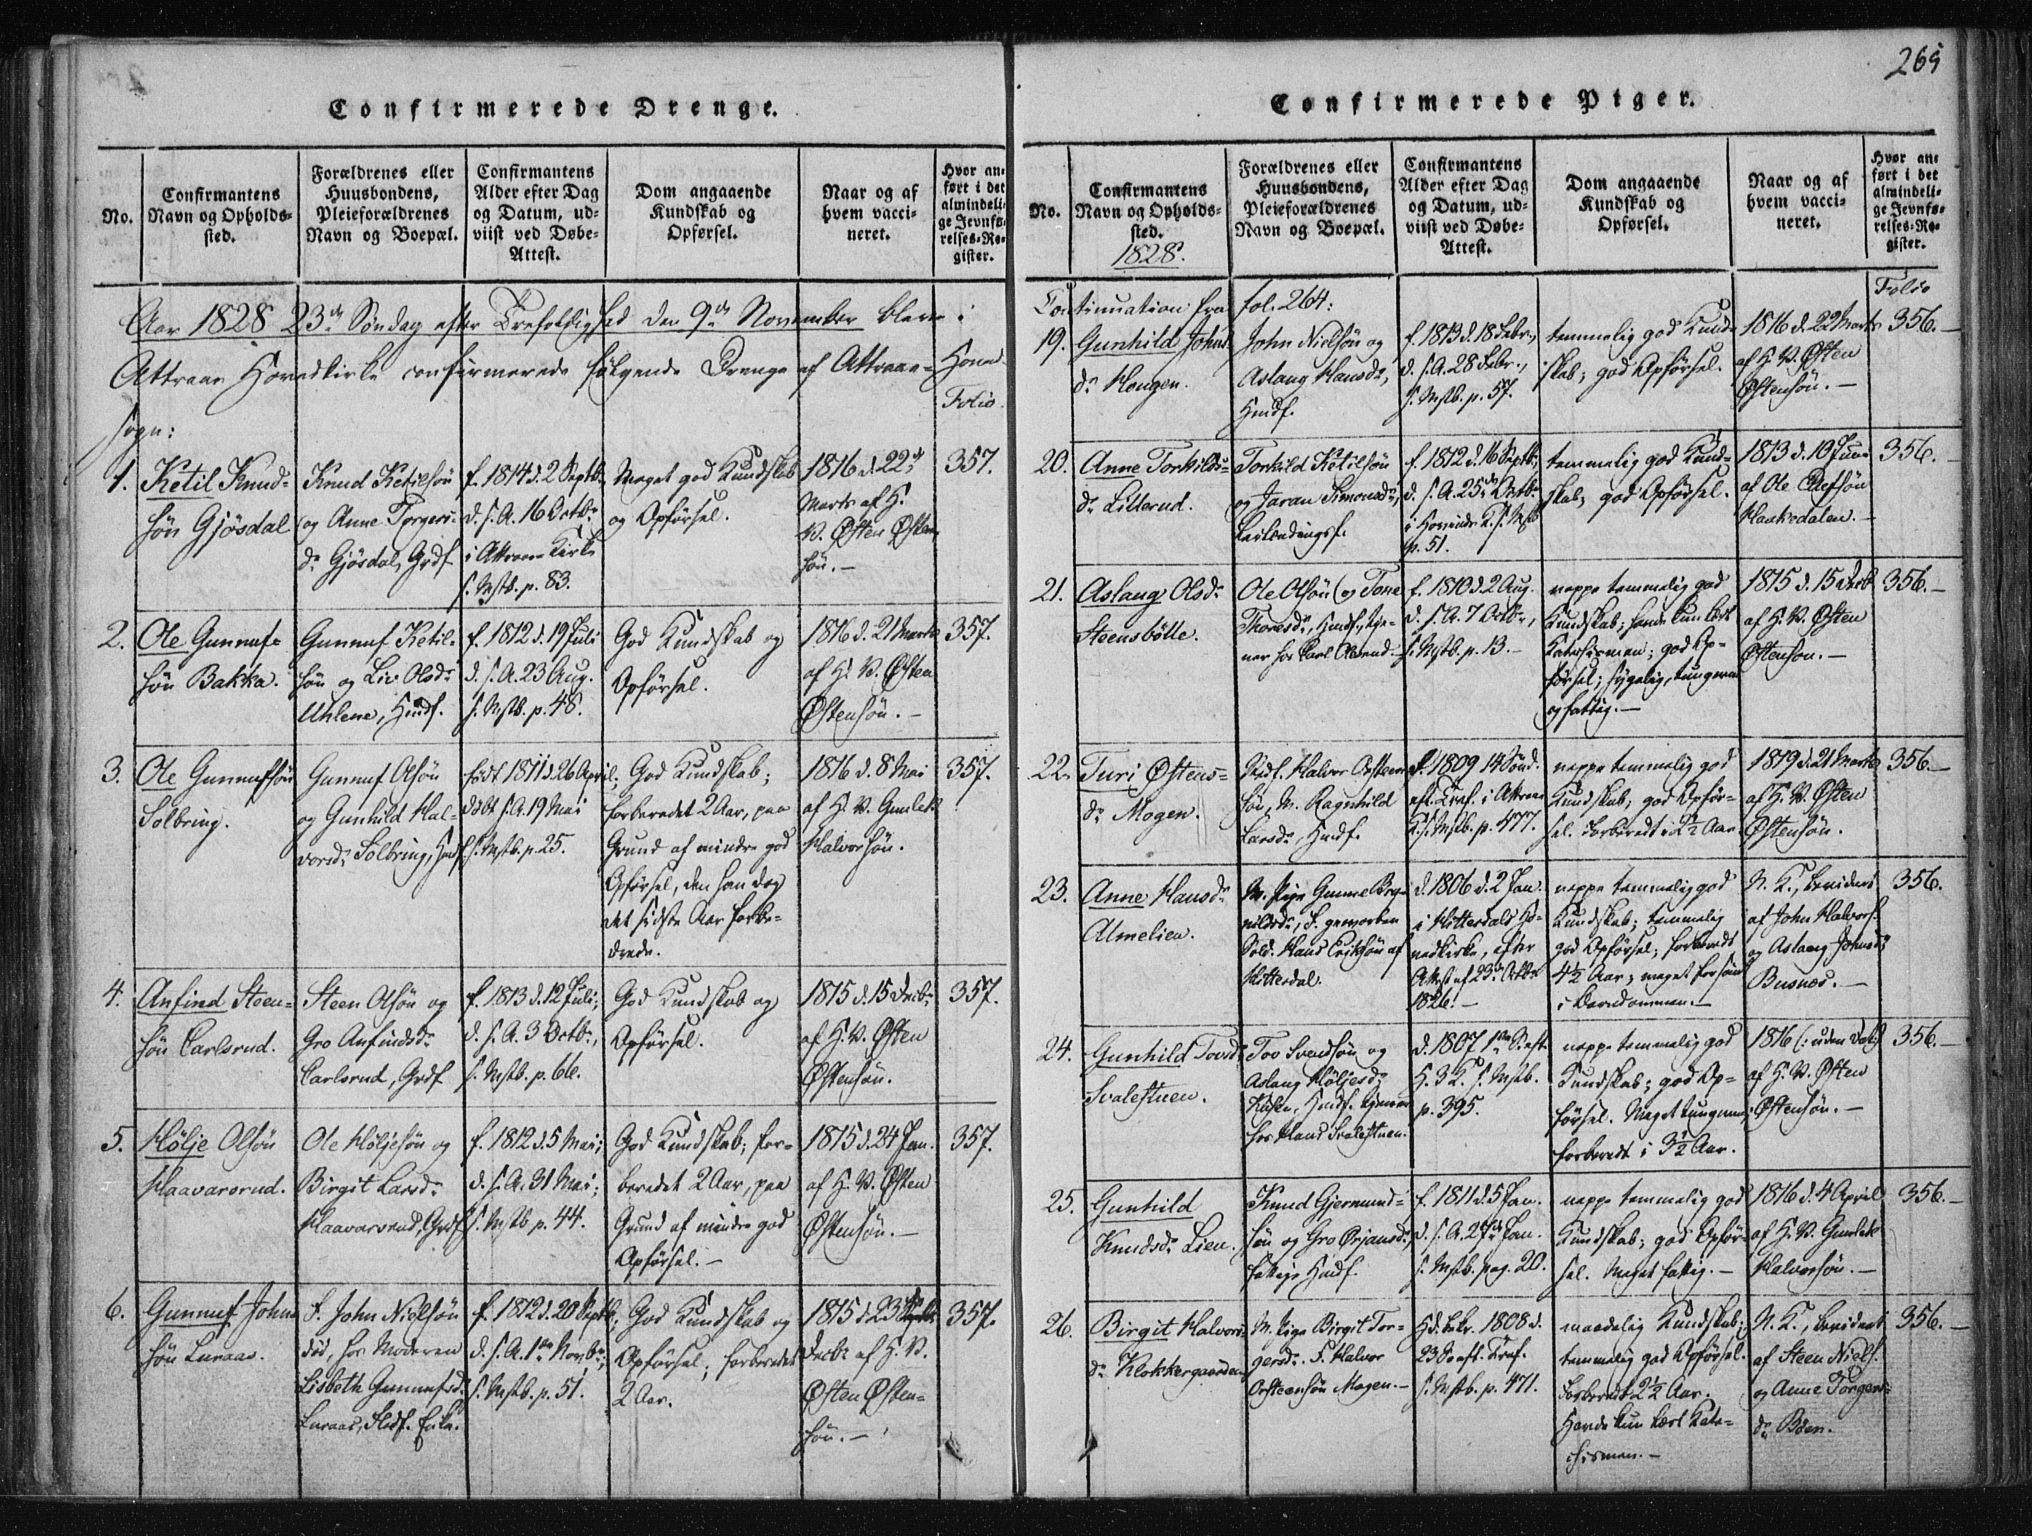 Confirmerede Drenge.
No.
Confirmantens
Navn og Opholds-
sted.
Forældrenes eller
Huusbondens,
Pleieforældrenes
Navn og Boepæl.
Confirmantens
Alder efter Dag
og Datum, ud-
viist ved Døbe-
Attest.
Dom angaaende
Kundskab og
Opførsel.
Naar og af
hvem vacci-
neret.
Hvor an-
ført i det
almindeli-
ge Jevnfø-
relses-Re-
gister.
Aar 1828 23de Søndag efter Trefoldighed den 9de November bleve i
Attraae Hovedkirke confirmerede følgende Drenge af Attraae-Hoved-
sogn:
Folio.
1.
Ketil Knud-
søn Gjøsdal
Knud Ketilsøn
og Anne Torgers-
dr Gjøsdal, Grdf
f. 1814 d. 2 Septb.
d. s. A. 16 Octbr
i Attraae Kirke
s. Mstb. p. 83.
Meget god Kundskab
og Opførsel.
1816 d. 22de
Marts af H.
V. Østen Østen-
søn. —
357.
2.
Ole Gunnuf-
søn Bakka.
Gunnuf Ketil-
søn og Liv Olsdr
Uhlene, Hmdf.
f. 1812 d. 19 Juli
d. s. A. 23 Aug.
s. Mstb. p. 48.
God Kundskab og
Opførsel.
1816 d. 21 Marts
af H. V. Østen
Østensøn. —
357.
3.
Ole Gunnufsøn
Solbring.
Gunnuf Olsøn
og Gunhild Hal-
vorsdr Solbring, Hmdf
født 1811 d. 26 April,
døbt s. A. 19 Mai
s. Mstb. p. 25.
God Kundskab;
forberedet 2 Aar, paa
Grund af mindre god
Opførsel, den han dog
det sidste Aar forbe-
drede.
1816 d. 8 Mai
af H. V. Gunleik
Halvorsøn.
357.
4.
Anfind Steen-
søn Carlsrud.
Steen Olsøn og
Gro Anfindsdr
Carlsrud, Grdf
f. 1813 d. 12 Juli;
d. s. A. 3 Octbr,
s. Mstb. p. 66.
God Kundskab og
Opførsel.
1815 d. 15 Decbr
af H. V. Østen
Østensøn.
357.
5.
Høljе Olsøn
Haavarsrud.
Ole Høljesøn og
Birgit Larsdr
Haavarsrud, Grdf
f. 1812 d. 5 Mai;
d. s. A. 31 Mai;
s. Mstb p. 44.
God Kundskab; for-
beredet 2 Aar, paa
Grund af mindre god
Opførsel. —
1815 d. 24 Jan.
af H. V. Østen
Østensøn. —
357.
6.
Gunnuf John-
søn Luraas.
F. John Nielsøn
død, hos Moderen
Lisbeth Gunnufsdr
Luraas, Sldf. Enke.
f. 1812 d. 20 Septb.
d. s. A. 1ste Novbr;
s. Mstb. p. 51.
God Kundskab og
Opførsel; forberedet
2 Aar.
1815 d. 23de
Decbr af H. V.
Østen Østen-
søn. —
357.
265
Confirmerede Piger.
No.
Confirmantens
Navn og Opholds-
sted.
1828.
Forældrenes eller
Huusbondens,
Pleieforældrenes
Navn og Boepæl.
Confirmantens
Alder efter Dag
og Datum, ud-
viist ved Døbe-
Attest.
Dom angaaende
Kundskab og
Opførsel.
Naar og af
hvem vacci-
neret.
Hvor an-
ført i det
almindeli-
ge Jevnfø-
relses-Re-
gister.
Continuation fra fol. 264:
Folio
19.
Gunhild Johns
dr Haugen.
John Nielsøn og
Aslaug Hansdr,
Hmdf.
f. 1813 d. 18 Febr,
d. s. A. 28 Febr.,
s. Mstb. p. 57.
temmelig god Kund-
skab; god Opførsel.
1816 d. 22 Marts
af H. V. Østen
Østensøn. —
356. —
20.
Anne Torkilds-
dr Lilerud.
Torkild Ketilsøn
og Jaran Simonsdr,
f. 1812 d. 16 Septb.,
d. s. A. 25de Octbr
i Hovinds K. s. Mstb
p. 51.
temmelig god Kund-
skab, god Opførsel.
1813 d. 10 Juni
af Ole Olefsøn
Haakedalen. —
356. —
21.
Aslaug Olsdr
Steensbølle.
Ole Olsøn og Tone
Thoresdr, Hmdf., tje-
ner hos
f. 1810 d. 2 Aug.
d. s. A. 7 Octbr,
s. Mstb. p. 13. —
neppe temmelig god
Kundskab; havde kun lært
Katechismen; god Op-
førsel; sygelig, tungnem
og fattig. —
1815 d. 15 Decb
af H. V. Østen
Østenson. —
356. —
22.
Turi Østens-
dr Mogen.
Slidf. Halvor Orsteen-
søn, M. Ragnhild
Larsdr, Hmdf.
d. 1809 14 Sønd.
eft. Tref. i Attraae
K. s. Mstb. p. 477.
neppe temmelig god
Kundskab, god Opfør-
sel. Forberedt i 2½ Aar.
1819 d. 21 Marts
af H. V. Østen
Østensøn.
356. —
23.
Anne Hansdr
Almelien.
M. Pige Gunne
F. geworben
Sold. Hans Eriksøn af
Hitterdal.
d. 1806 d. 2 Jan.
i Hitterdals Ho-
vedkirke, efter
Attest af 23de Octbr
1826. —
neppe temmelig god
Kundskab; temmelig
god Opførsel; forberedt
4½ Aar; meget forsømt
i Barndommen. —
N. K., bevidnet
af John Halvors.
og Aslaug Johnsdr
Busnes. —
356.
24.
Gunhild Tovsdr
Svalestuen.
Tov Svendsøn og
Aslaug Høljesdr
Husen, Hmdf. tjener
hos Hans Svalestuen.
d. 1807 1ste
H. 3 K. s. Mstb.
p. 395.
neppe temmelig god
Kundskab; god Op-
førsel. Meget tungnem;
forberedt i 3½ Aar.
1816 (: uden Dat:)
af H. V. Østen
Østensøn. —
356. —
25.
Gunhild
Knudsdr Lien.
Knud Gjermund-
søn og Gro Ørjansdr,
fattige Hmdf.
f. 1811 d. 5 Jan.
d. s. A. 27de Jan.
s. Mstb. pag. 20.
neppe temmelig god
Kundskab; god Opfør-
sel. Meget fattig. —
1816 d. 4 April
af H. V. Gunleik
Halvorsøn. —
356. —
26.
Birgit Halvors
dr Klokkergaarden
M. Pige Birgit Tor-
gersdr. F. Halvor
Orsteensøn Mogen. —
Hd. bekr. 1808 d.
23 S. eft. Tref.
s. Mstb. p. 471.
maadelig Kundskab;
temmelig god Opførsel.
Forberedt 2½ Aar.
Havde kun lært Kate-
chismen. —
N. K., bevidnet
af Steen Niels.
og Anne Torgers-
dr Bøen.
356. —